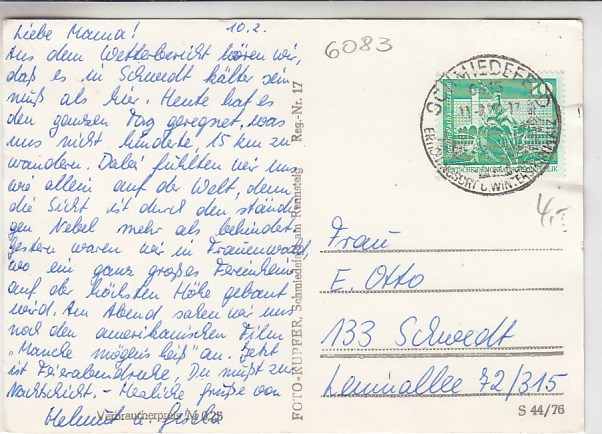 Liebe Mama! 10.2.
Aus dem Wetterbericht hören wir,
daß es in Schwedt kälter sein
muß als hier. Heute hat es
den ganzen Tag geregnet, was
uns nicht hinderte, 15 km zu
wandern. Dabei fühlten wir uns
wie allein auf der Welt, denn
die Sicht ist durch den ständi-
gen Nebel mehr als behindert.
Gestern waren wir in Frauenwald
wo ein ganz großes Ferienheim
auf der höchsten Höhe gebaut
wird. Am Abend sahen wir uns
noch den amerikanischen Film
„Manche mögens heiß" an. Jetzt
ist Feierabendruhe, Du mußt zur
Nachtschicht. - Herzliche Grüße von
Helmut u. Gisela
Verbraucherpreis M 0,25
FOTO-KUPFER, Schmiedefeld am Rennsteig Reg.-Nr. 17
6083
SCHMIEDEFELD
10
DEUTSCHE DEMOKRATISCHE REPUBLIK
ERHOLUNGSORT u. WINTERSPORTPLATZ
4,-
Frau
E. Otto
133 Schwedt
Leninallee 72/315
S 44/76